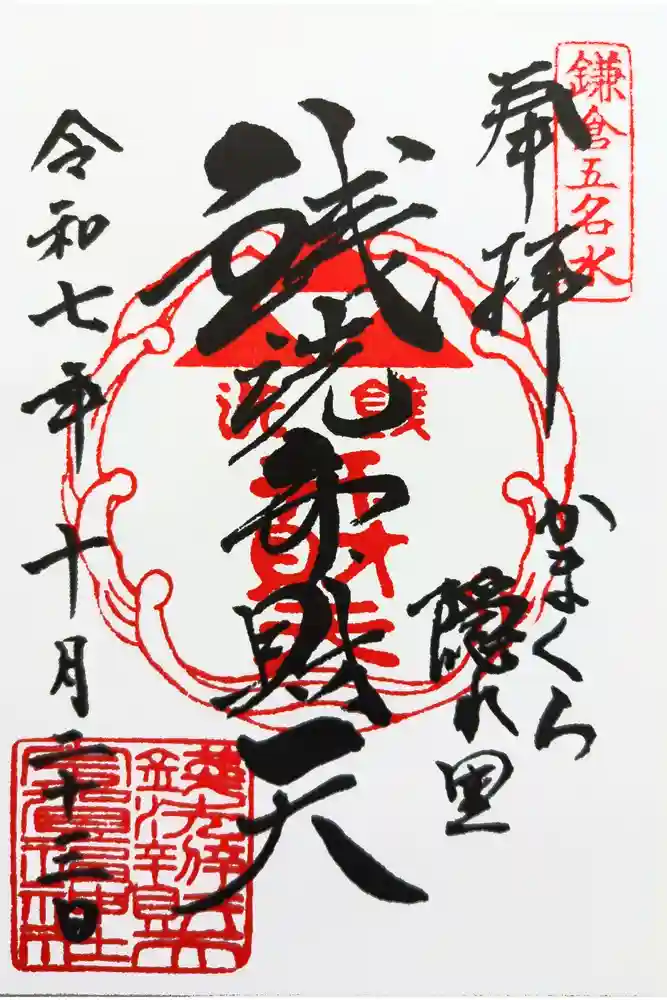 鎌倉五名水
奉拝
かまくら
隠れ里
銭洗弁財天
令和七年十月二十三日